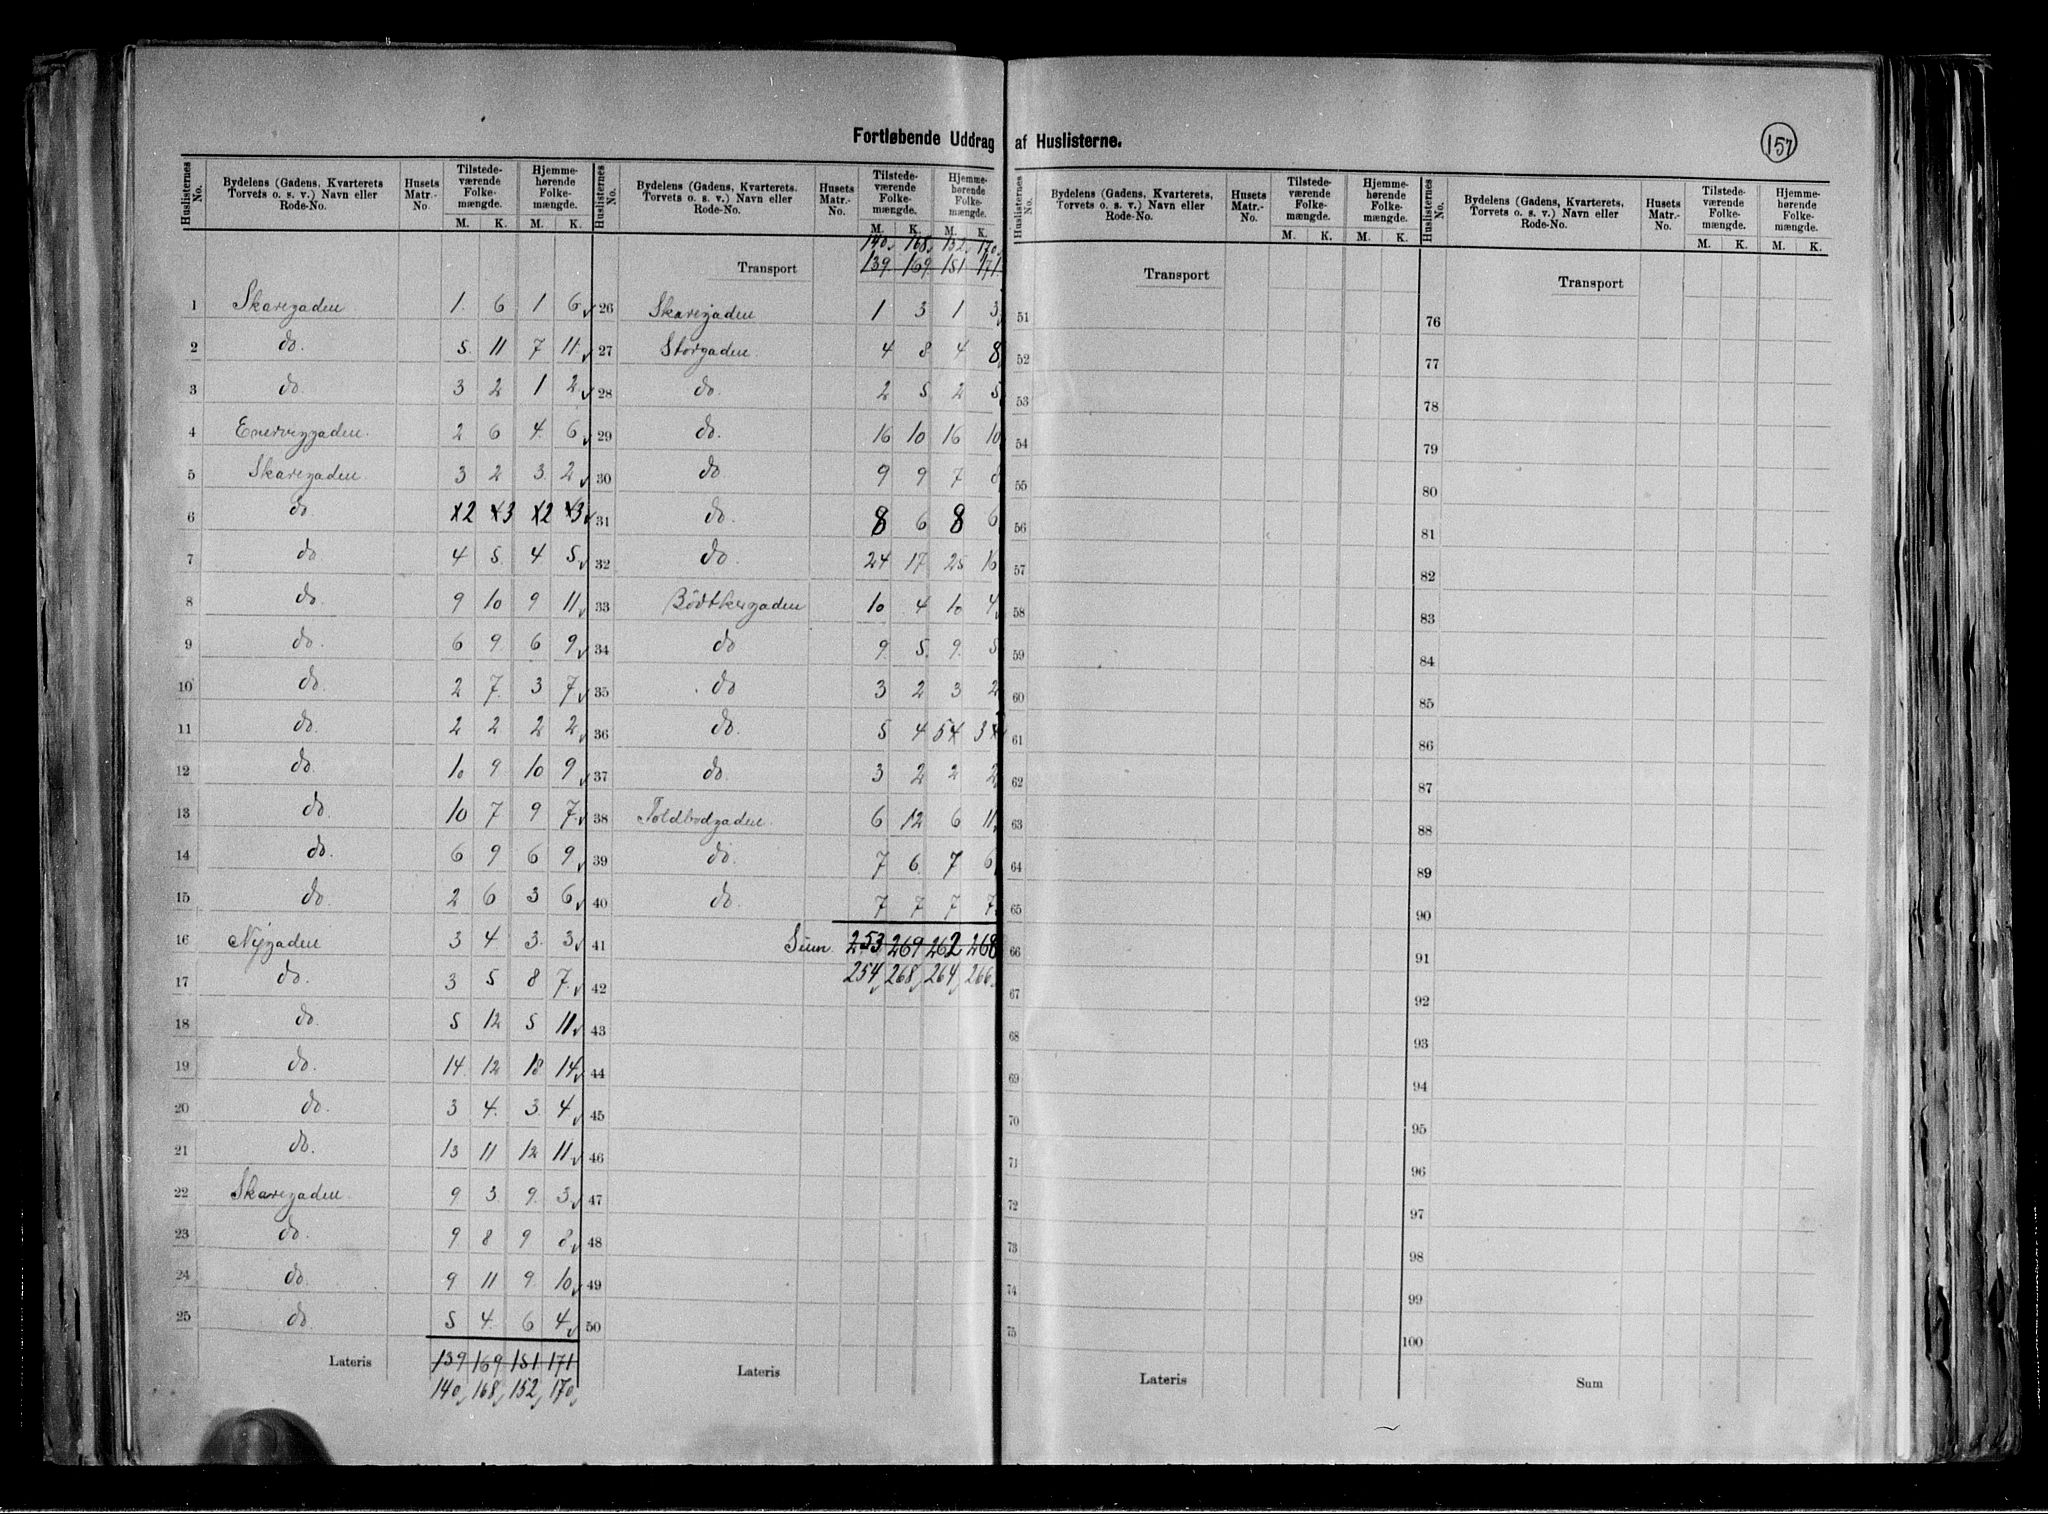 Fortløbende Uddrag af Huslisterne.
157
Huslisternes No. | Bydelens (Gadens, Kvarterets Torvets o. s. v.) Navn eller Rode-No. | Husets Matr.-No. | Tilstedeværende Folkemængde. M. K. | Hjemmehørende Folkemængde. M. K.
1 Skaregaden 1. 6 1 6
2 do. 5. 11 7 11
3 do. 3 2 1 2
4 Enerveggaden. 2 6 4. 6
5 Skaregaden 3 2 3. 2
6 do 2 3 2 3
7 do. 4 5. 4 5
8 do. 9 10 9 11
9 do. 6 9. 6 9
10 do. 2 7. 3 7
11 do. 2 2 2 2
12 do. 10 9 10 9
13 do. 10 7 9 7.
14 do. 6 9 6 9
15 do. 2 6 3 6
16 Nygaden 3 4 3. 3
17 do. 3 5 8 7.
18 do. 5 12 5 11
19 do. 14. 12 18 14
20 do. 3 4. 3. 4
21 do. 13 11 12 11
22 Skaregaden. 9 3. 9. 3
23 do. 9 8 9 8
24 do. 9 11 9. 10
25 do. 5 4. 6 4
Lateris 139 169 151 171
140 168 152 170
Huslisternes No. | Bydelens (Gadens, Kvarterets. Torvets o. s. v.) Navn eller Rode-No. | Husets Matr.-No. | Tilstedeværende Folkemængde. M. K. | Hjemmehørende Folkemængde. M. K.
140 168 152 170
Transport 139 169 151 171
26 Skaregaden 1 3 1 3
27 Storgaden. 4 8 4 8
28 do. 2 5 2 5
29 do. 16 10 16 10
30 do 9 9 7 8
31 do. 8 6 8 6
32 do. 24 17 25 16
33 Bödtkergaden 10 4 10 4
34 do 9. 5. 9. 5
35 do 3 2 3 2
36 do. 5 4 54 3
37 do. 3 2 2 2
38 Toldbodgaden. 6 12 6 11
39 do. 7 6. 7 6
40 do. 7 7 7 7.
41 Sum 253 269 262 268
254 268 264 266
42
43
44
45
46
47
48
49
50
Lateris
Huslisternes No. | Bydelens (Gadens, Kvarterets, Torvets o. s. v.) Navn eller Rode-No. | Husets Matr.-No. | Tilstedeværende Folkemængde. M. K. | Hjemmehørende Folkemængde. M. K.
Transport
51
52
53
54
55
56
57
58
59
60
61
62
63
64
65
66
67
68
69
70
71
72
73
74
75
Lateris
Huslisternes No. | Bydelens (Gadens, Kvarterets, Torvets o. s. v.) Navn eller Rode-No. | Husets Matr.-No. | Tilstedeværende Folkemængde. M. K. | Hjemmehørende Folkemængde. M. K.
Transport
76
77
78
79
80
81
82
83
84
85
86
87
88
89
90
91
92
93
94
95
96
97
98
99
100
Sum